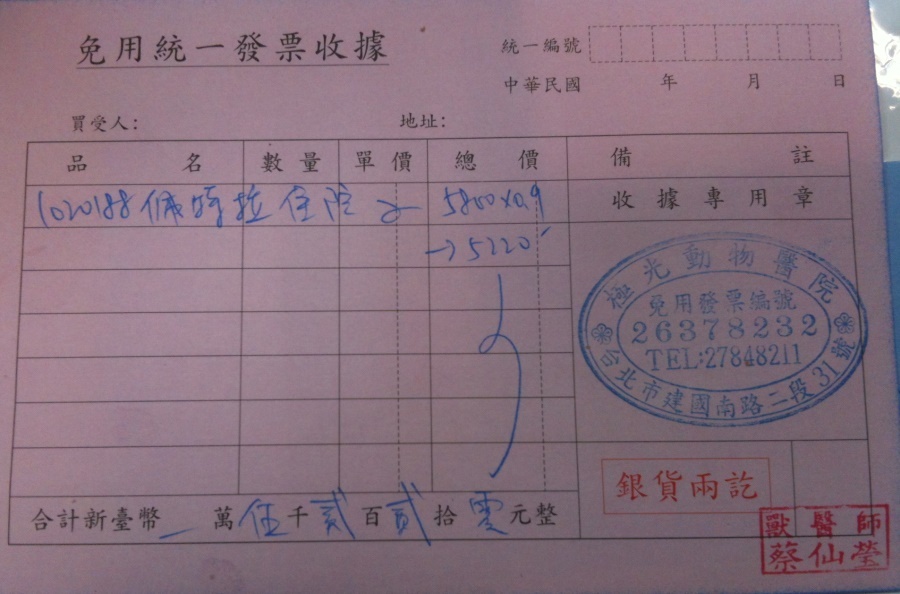 免用統一發票收據
統一編號
中華民國 年 月 日
買受人: 地址:
品名 數量 單價 總價 備註
1020188 佩特拉住院 5800x0.9
→5220
收據專用章
極光動物醫院
免用發票編號
26378232
TEL:27848211
台北市建國南路二段31號
銀貨兩訖
合計新臺幣 萬伍千貳百貳拾零元整
獸醫師
蔡仙瑩